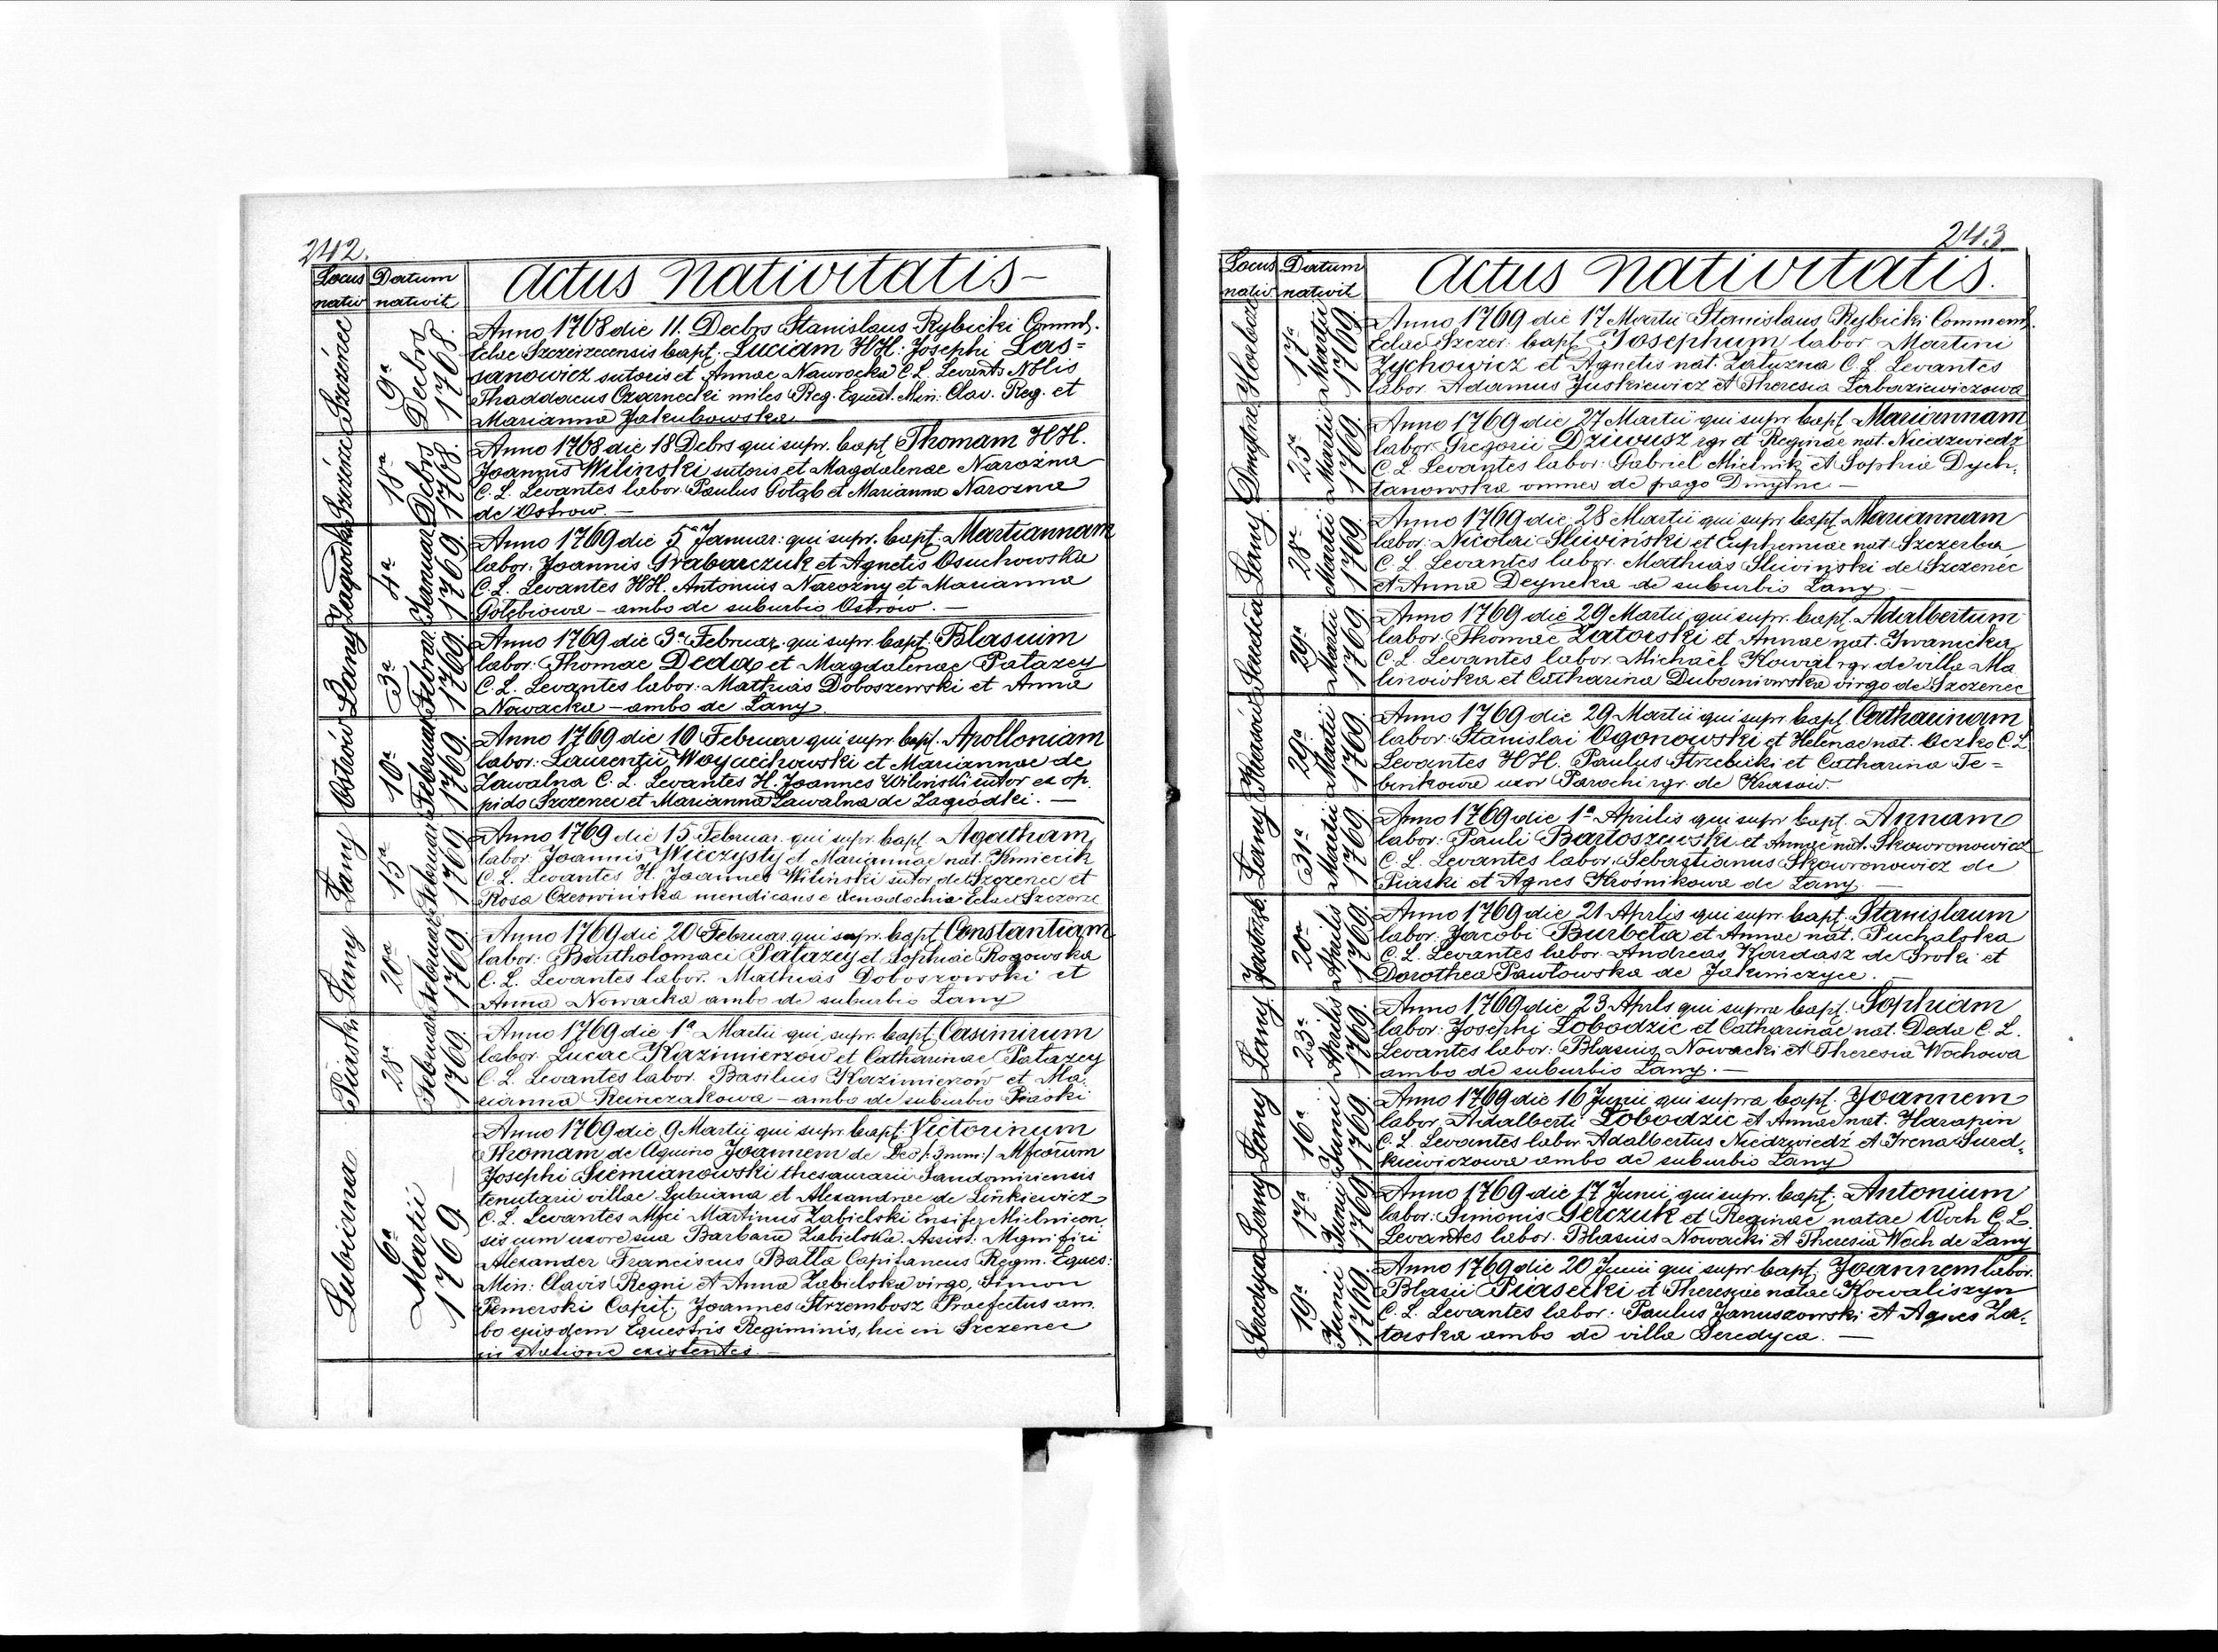 242.
Locus nativ
Datum nativit
Actus nativitatis
Szczérzec
9ª Decbrs 1768.
Anno 1768 die 11. Decbrs Stanislaus Rybicki Commd.
Eclae Szczerzecensis bapt. Luciam HH. Josephi Las=
sanowicz sutoris et Annae Nawrocka C. L. Levants Nblis
Thaddaeus Czarnecki miles Reg. Equest. Min. Clav. Reg. et
Marianna Jakubowska
18ª Decbrs 1768.
Anno 1768 die 18 Debrs qui supr. bapt Thomam HH.
Joannis Wilinski sutoris et Magdalenae Narożna
C. L. Levantes labor. Paulus Gołąb et Marianna Narozna
de Ostrow.
Zagrodki
4ª Januar 1769.
Anno 1769 die 5ª Januar: qui supr. bapt. Martiannam
labor: Joannis Grabarczuk et Agnetis Osuchowska
C. L. Levantes HH. Antonius Narożny et Marianna
Gołębiowa - ambo de suburbio Ostrów.
Łany
3ª Februar 1769
Anno 1769 die 3ª Februar. qui supr. bapt. Blasium
labor: Thomae Deda et Magdalenae Patazey
C. L. Levantes labor: Mathias Doboszewski et Anna
Nowacka - ambo de Łany.
Ostrów
10ª Februar 1769.
Anno 1769 die 10 Februar qui supr bapt. Apolloniam
labor: Laurentii Woyciechowski et Mariannae de
Zawalna C. L. Levantes H. Joannes Wilinski sutor ex op.
pido Szczerzec et Marianna Zawalna de Zagródki.
Łany
15ª Februar 1769
Anno 1769 die 15 Februar. qui supr. bapt. Agatham
labor. Joannis Wieczysty et Mariannae nat. Kmiecik
C. L. Levantes H. Joannes Wiliński sutor de Szczerzec et
Rosa Czerwińska mendicans e Xenodochio Eclae Szczerz.
Łany
20ª Februar 1769
Anno 1769 die 20 Februar. qui supr. bapt Constantiam
labor: Bartholomaei Patazey et Sophiae Rogowska
C. L. Levantes labor. Mathias Doboszowski et
Anna Nowacka ambo de suburbio Łany
Piaski
28ª Februar 1769.
Anno 1769 die 1ª Martii qui supr. bapt. Casimirum
labor. Lucae Kazimierzow et Catharinae Patazey
C. L. Levantes labor. Basilius Kazimierzów et Ma,
rianna - ambo de suburbio Piaski
Lubiana
6ª Martii 1769
Anno 1769 die 9 Martii qui supr. bapt. Victorinum
Thomam de Aquino Joannem de Deo Mficorum
Josephi Siemianowski thesaurarii Sandomiriensis
tenutarii villae Lubiana et Alexandrae de Linkiewicz
C. L. Levantes Mfci Martinus Zabielski Ensifer Mielnicen.
sis cum uxore sua Barbara Zabielska. Assist. Mgnifici
Alexander Franciscus Balla Capitaneus Regim. Eques:
Min: Clavis Regni et Anna Zabielska virgo, Simon
Pemerski Capit., Joannes Strzembosz Praefectus am.
bo ejusdem Equestris Regiminis, hic in Szczerzec
in statione existentes.
243
Locus nativ
Datum nativit
Actus nativitatis.
Horbacze
17ª Martii 1769
Anno 1769 die 17 Martii Stanislaus Rybicki Commend.
Eclae Szczer. bapt Josephum labor Martini
Zychowicz et Agnetis nat. Załużna C. L. Levantes
labor. Adamus Juskiewicz et Theresia
Dmytrze
25ª Martii 1769.
Anno 1769 die 27 Martii qui supr. bapt Mariannam
labor: Gregorii Dziwusz rgr et Reginae nat. Niedzwiedz
C. L. Levantes labor: Gabriel Mielnik et Sophia Dych,
tanowska omnes de pago Dmytrze
Łany
28ª Martii 1769
Anno 1769 die 28 Martii qui supr bapt. Mariannam
labor: Nicolai Sliwiński et Euphemiae nat Szczerba
C. L. Levantes labor. Mathias Sliwiński de Szczerzec
et Anna Deyneka de suburbio Łany.
Seredica
29ª Martii 1769.
Anno 1769 die 29 Martii qui supr. bapt. Adalbertum
labor. Thomae Zatorski et Annae nat. Iwanicka
C. L. Levantes labor. Michaël Kowal rgr de villa Ma
linowka et Catharina Dubaniowska virgo de Szczerzec
Krasów
29ª Martii 1769.
Anno 1769 die 29 Martii qui supr bapt Catharinam
labor. Stanislai Ogonowski et Helenae nat. Oczko C. L.
Levantes HH. Paulus Strzebicki et Catharina Te=
binkowa uxor Parochi rgr. de Krasów.
Łany
31ª Martii 1769.
Anno 1769 die 1ª Aprilis qui supr bapt. Annam
labor: Pauli Bartoszewski et Annae nat. Skowronowicz
C. L. Levantes labor. Sebastianus Skowronowicz de
Piaski et Agnes Krośnikowa de Łany.
20ª Aprilis 1769.
Anno 1769 die 21 Aprlis qui supr bapt. Stanislaum
labor. Jacobi Burbela et Annae nat. Puchalska
C. L. Levantes labor Andreas Kardasz de Sroki et
Dorothea Pawłowska de Jakimczyce.
Łany
23ª Aprilis 1769.
Anno 1769 die 23 Aprls qui supra bapt. Sophiam
labor: Josephi Łobodzic et Catharinae nat. Deda C. L.
Levantes labor: Blasius Nowacki et Theresia Wochowa
ambo de suburbio Łany.
Łany
16ª Junii 1769
Anno 1769 die 16 Junii qui supra bapt. Joannem
labor Adalberti Łobodzic et Annae nat. Harapin
C. L. Levantes labor Adalbertus Niedzwiedź et Irena Surd,
kiewiczowa ambo de suburbio Łany
Łany
17ª Junii 1769
Anno 1769 die 17 Junii qui supr. bapt. Antonium
labor: Simonis Gerczuk et Reginae natae Woch C. L.
Levantes labor. Blasius Nowacki et Theresia Woch de Łany
Seredyca
19ª Junii 1769.
Anno 1769 die 20 Junii qui supr bapt. Joannem labor.
Blasii Piasecki et Theresiae natae Kowaliszyn
C. L. Levantes labor: Paulus Januszowski et Agnes Za,
torska ambo de villa Seredyca.